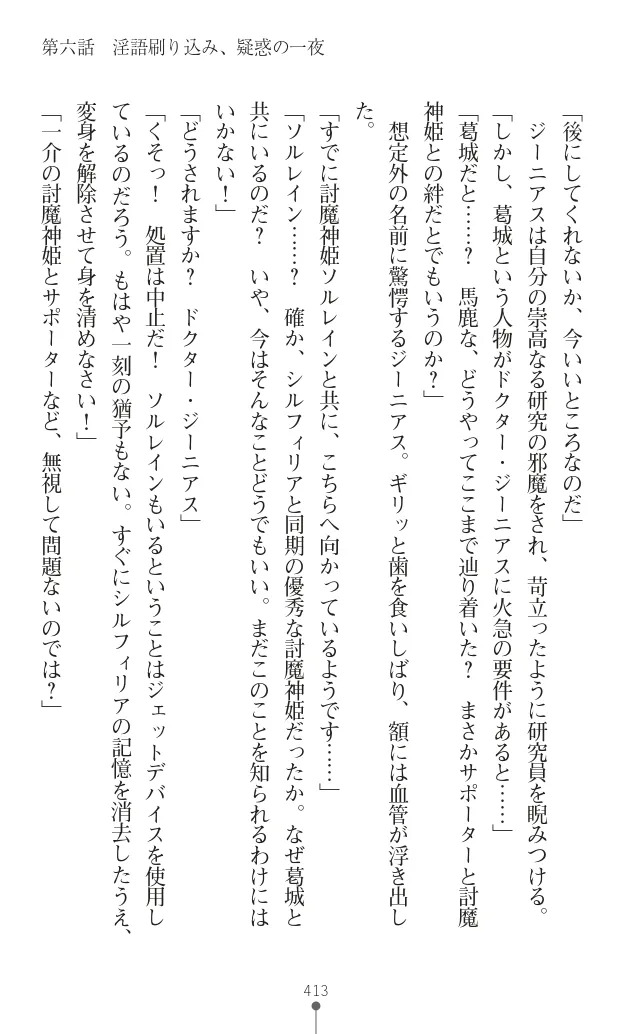 第六話　淫語刷り込み、疑惑の一夜
「後にしてくれないか、今いいところなのだ」
　ジーニアスは自分の崇高なる研究の邪魔をされ、苛立ったように研究員を睨みつける。
「しかし、葛城という人物がドクター・ジーニアスに火急の要件があると……」
「葛城だと……？　馬鹿な、どうやってここまで辿り着いた？　まさかサポーターと討魔
神姫との絆だとでもいうのか？」
　想定外の名前に驚愕するジーニアス。ギリッと歯を食いしばり、額には血管が浮き出し
た。
「すでに討魔神姫ソルレインと共に、こちらへ向かっているようです……」
「ソルレイン……？　確か、シルフィリアと同期の優秀な討魔神姫だったか。なぜ葛城と
共にいるのだ？　いや、今はそんなことどうでもいい。まだこのことを知られるわけには
いかない！」
「どうされますか？　ドクター・ジーニアス」
「くそっ！　処置は中止だ！　ソルレインもいるということはジェットデバイスを使用し
ているのだろう。もはや一刻の猶予もない。すぐにシルフィリアの記憶を消去したうえ、
変身を解除させて身を清めなさい！」
「一介の討魔神姫とサポーターなど、無視して問題ないのでは？」
413